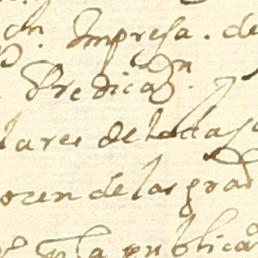 on. Impresa. de
Predicaon.
lares de todas
ocen de las gra
la publica